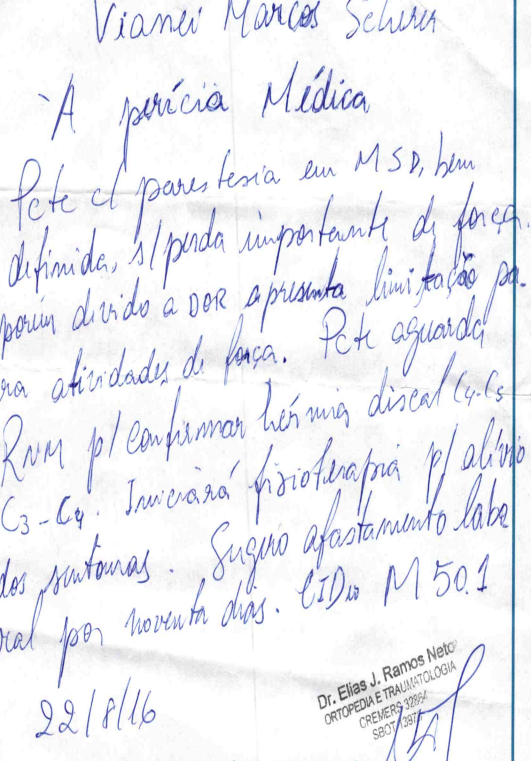 Vianei Marcos Scherer
À perícia Médica
Pcte c/ parestesia em MSD, bem
definida, s/ perda importante de força,
porém divido a DOR apresenta limitação pa-
ra atividades de força. Pcte aguarda
RNM p/ confirmar hérnia discal C4-C5
C3-C4. Iniciará fisioterapia p/ alívio
dos sintomas. Sugiro afastamento labo
ral por noventa dias. CID10 M 50.1
22/8/16
Dr. Elias J. Ramos Neto
ORTOPEDIA E TRAUMATOLOGIA
CREMERS
SBOT